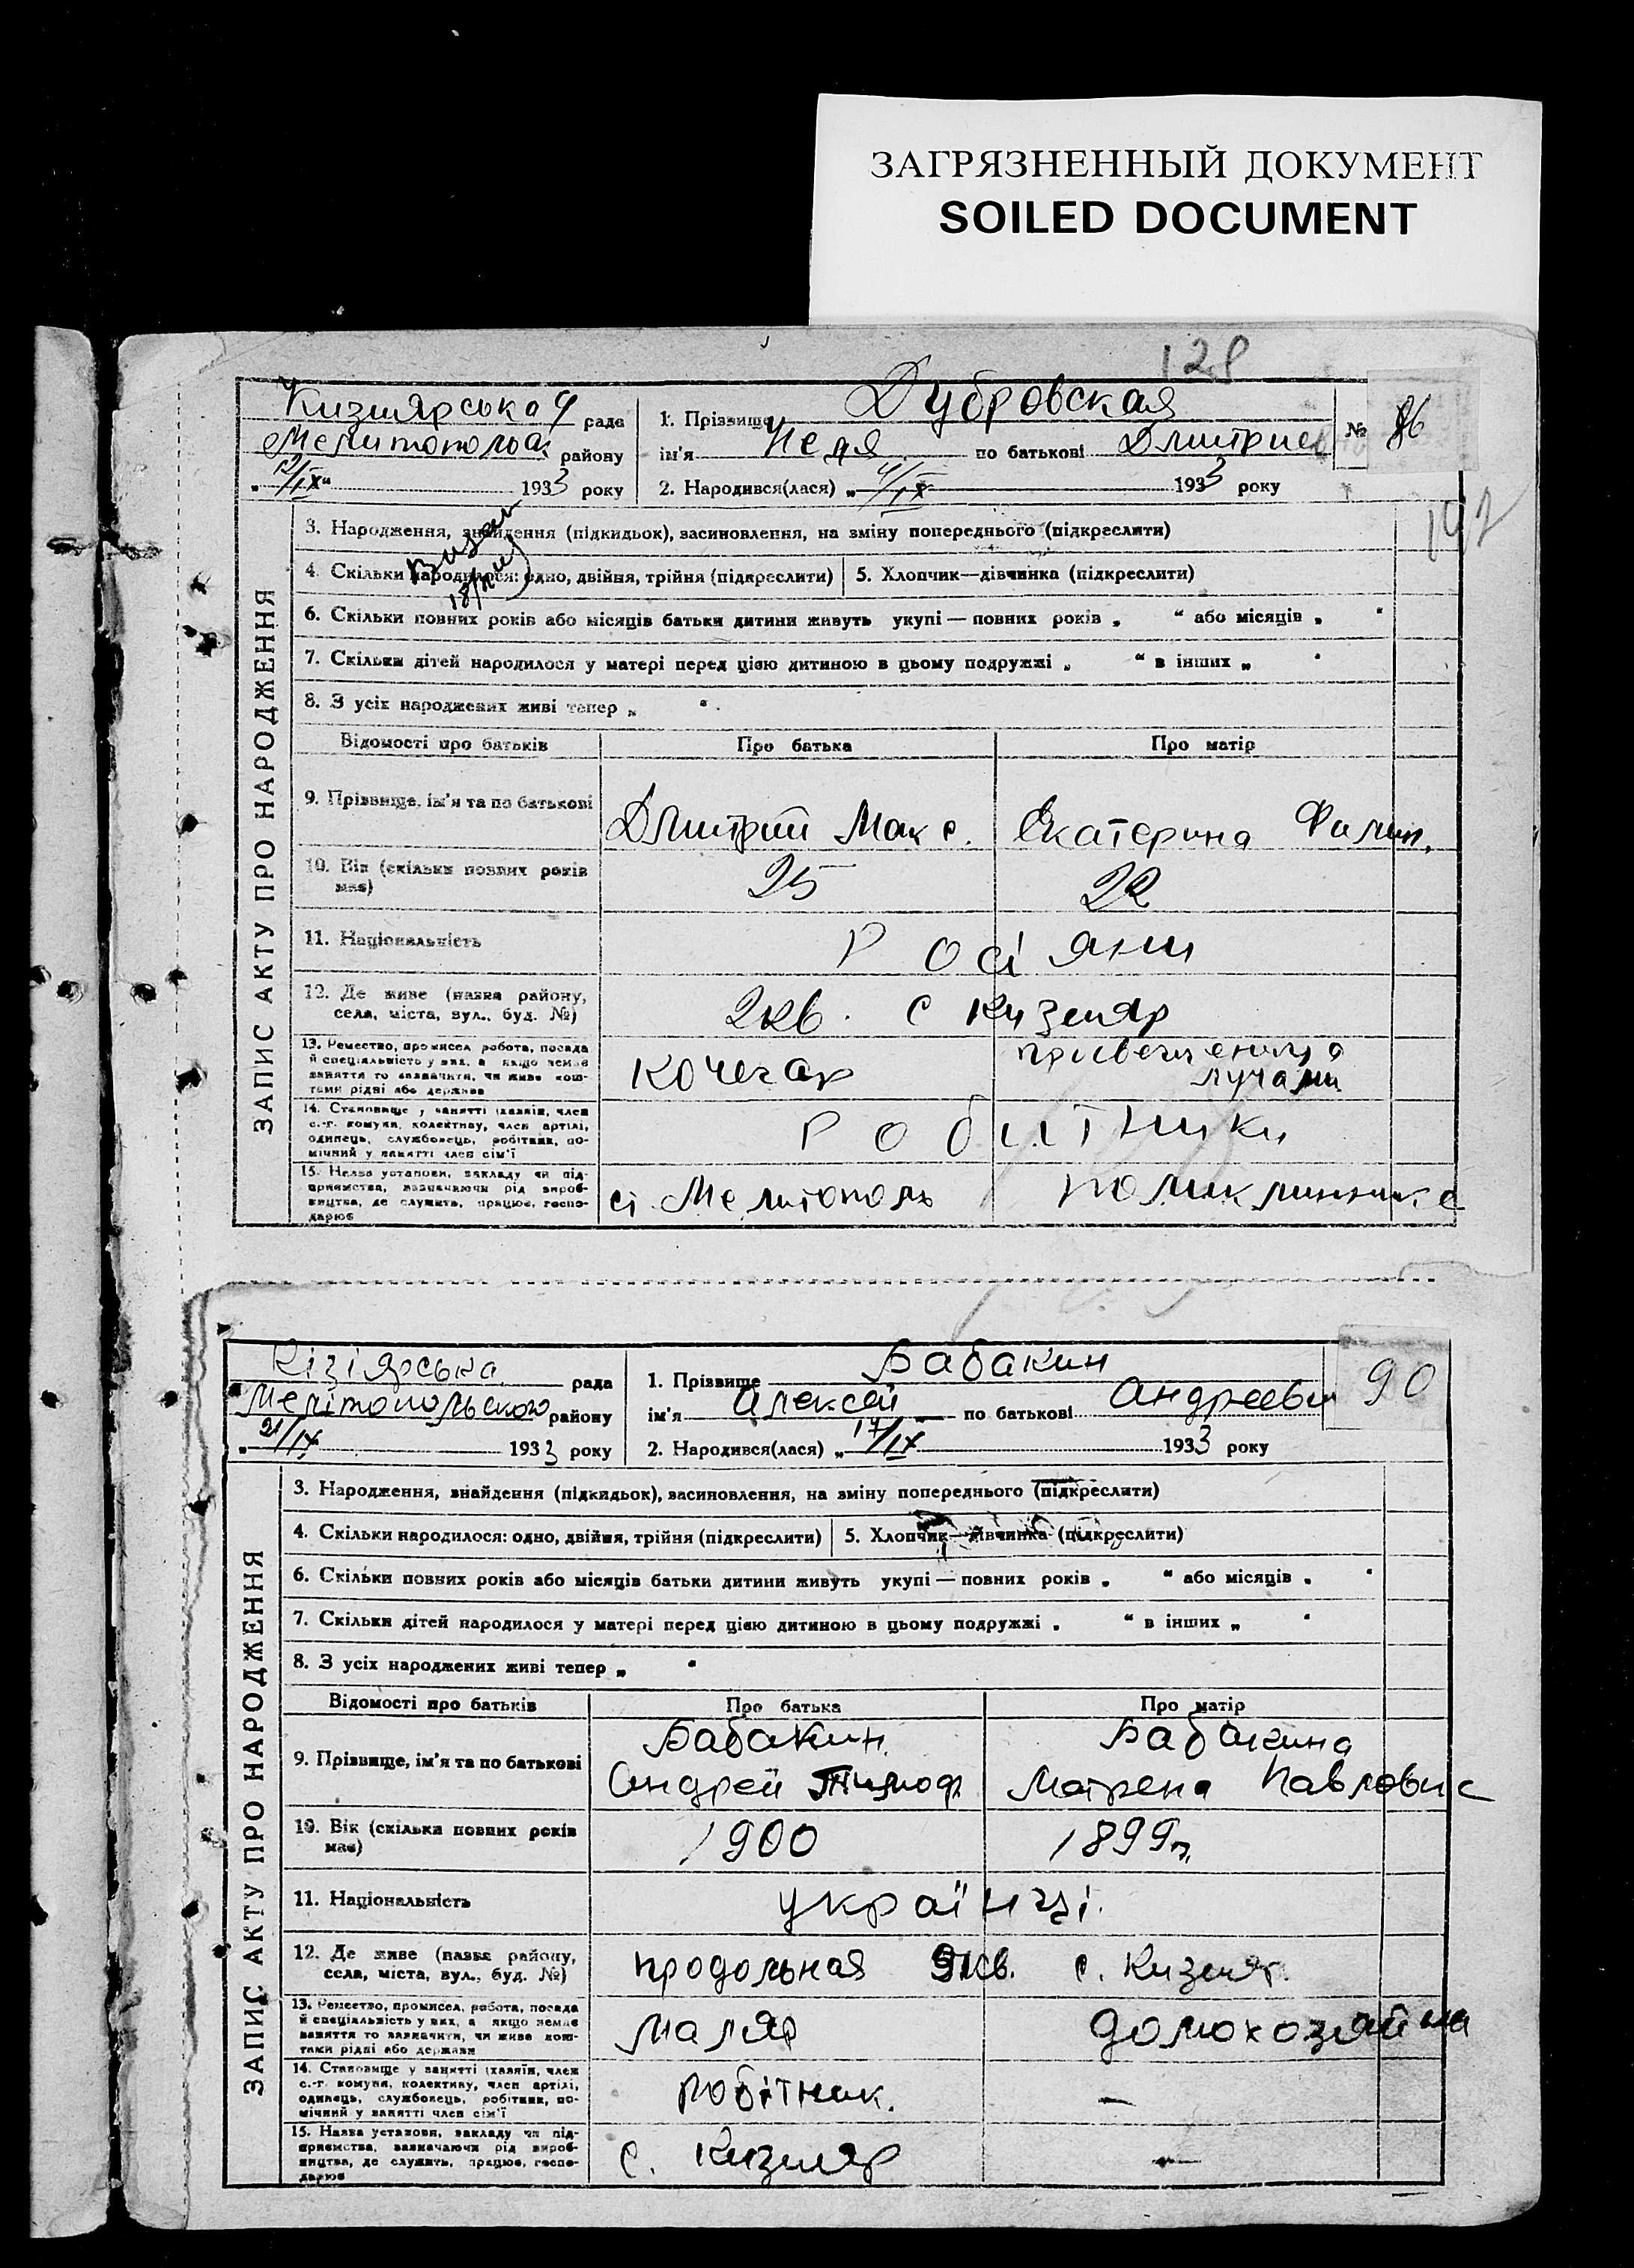 ЗАГРЯЗНЕННЫЙ ДОКУМЕНТ
SOILED DOCUMENT
128
Кизиярська рада
1. Прізвище Дубровская
района
ім'я Неля по батькові Дмитрие
№ 86
„12/IX“ 1933 року
2. Народився(лася) „4/IX 1933 року
ЗАПИС АКТУ ПРО НАРОДЖЕННЯ
3. Народження, знайдення (підкидьок), засиновлення, на зміну попереднього (підкреслити)
4. Скільки народилося: одно, двійня, трійня (підкреслити) 5. Хлопчик—дівчинка (підкреслити)
6. Скільки повних років або місяців батьки дитини живуть укупі — повних років „ “ або місяців „ “
7. Скільки дітей народилося у матері перед цією дитиною в цьому подружжі „ “ в інших „ “
8. З усіх народжених живі тепер „ “
Відомості про батьків Про батька Про матір
9. Прізвище, ім'я та по батькові Дмитрий Макс. Екатерина Филип.
10. Вік (скільки повних років має) 25 22
11. Національність Росіяни
12. Де живе (назва району, села, міста, вул., буд. №) 2кв. с Кизияр
13. Ремество, промисел, робота, посада й спеціяльність у них, а якщо немає заняття то зазначити, чи живе коштами рідні або держави кочегар лучами
14. Становище у занятті (хазяїн, член с.-г. комуни, колективу, член артілі, одинець, службовець, робітник, помічний у занятті член сім'ї Робитники
15. Назва установи, закладу чи підприємства, зазначаючи рід виробництва, де служить, працює, господарює ст. Мелитополь поликлиннике
Кізіярська рада
1. Прізвище Бабакин
Мелітопольского району
ім'я Алексей по батькові Андрееви
90
„21/IX 1933 року
2. Народився(лася) „17/IX 1933 року
ЗАПИС АКТУ ПРО НАРОДЖЕННЯ
3. Народження, знайдення (підкидьок), засиновлення, на зміну попереднього (підкреслити)
4. Скільки народилося: одно, двійня, трійня (підкреслити) 5. Хлопчик—дівчинка (підкреслити)
6. Скільки повних років або місяців батьки дитини живуть укупі — повних років „ “ або місяців „ “
7. Скільки дітей народилося у матері перед цією дитиною в цьому подружжі „ “ в інших „ “
8. З усіх народжених живі тепер „ “
Відомості про батьків Про батька Про матір
Бабакин Бабакина
9. Прізвище, ім'я та по батькові Андрей Тимоф Матрена Павловне
10. Вік (скільки повних років має) 1900 1899р.
11. Національність українці.
12. Де живе (назва району, села, міста, вул., буд. №) продольная кв. с. Кизияр.
13. Ремество, промисел, робота, посада й спеціяльність у них, а якщо немає заняття то зазначити, чи живе коштами рідні або держави маляр домохозяйка
14. Становище у занятті (хазяїн, член с.-г. комуни, колективу, член артілі, одинець, службовець, робітник, помічний у занятті член сім'ї робітник. —
15. Назва установи, закладу чи підприємства, зазначаючи рід виробництва, де служить, працює, господарює с. Кизияр —